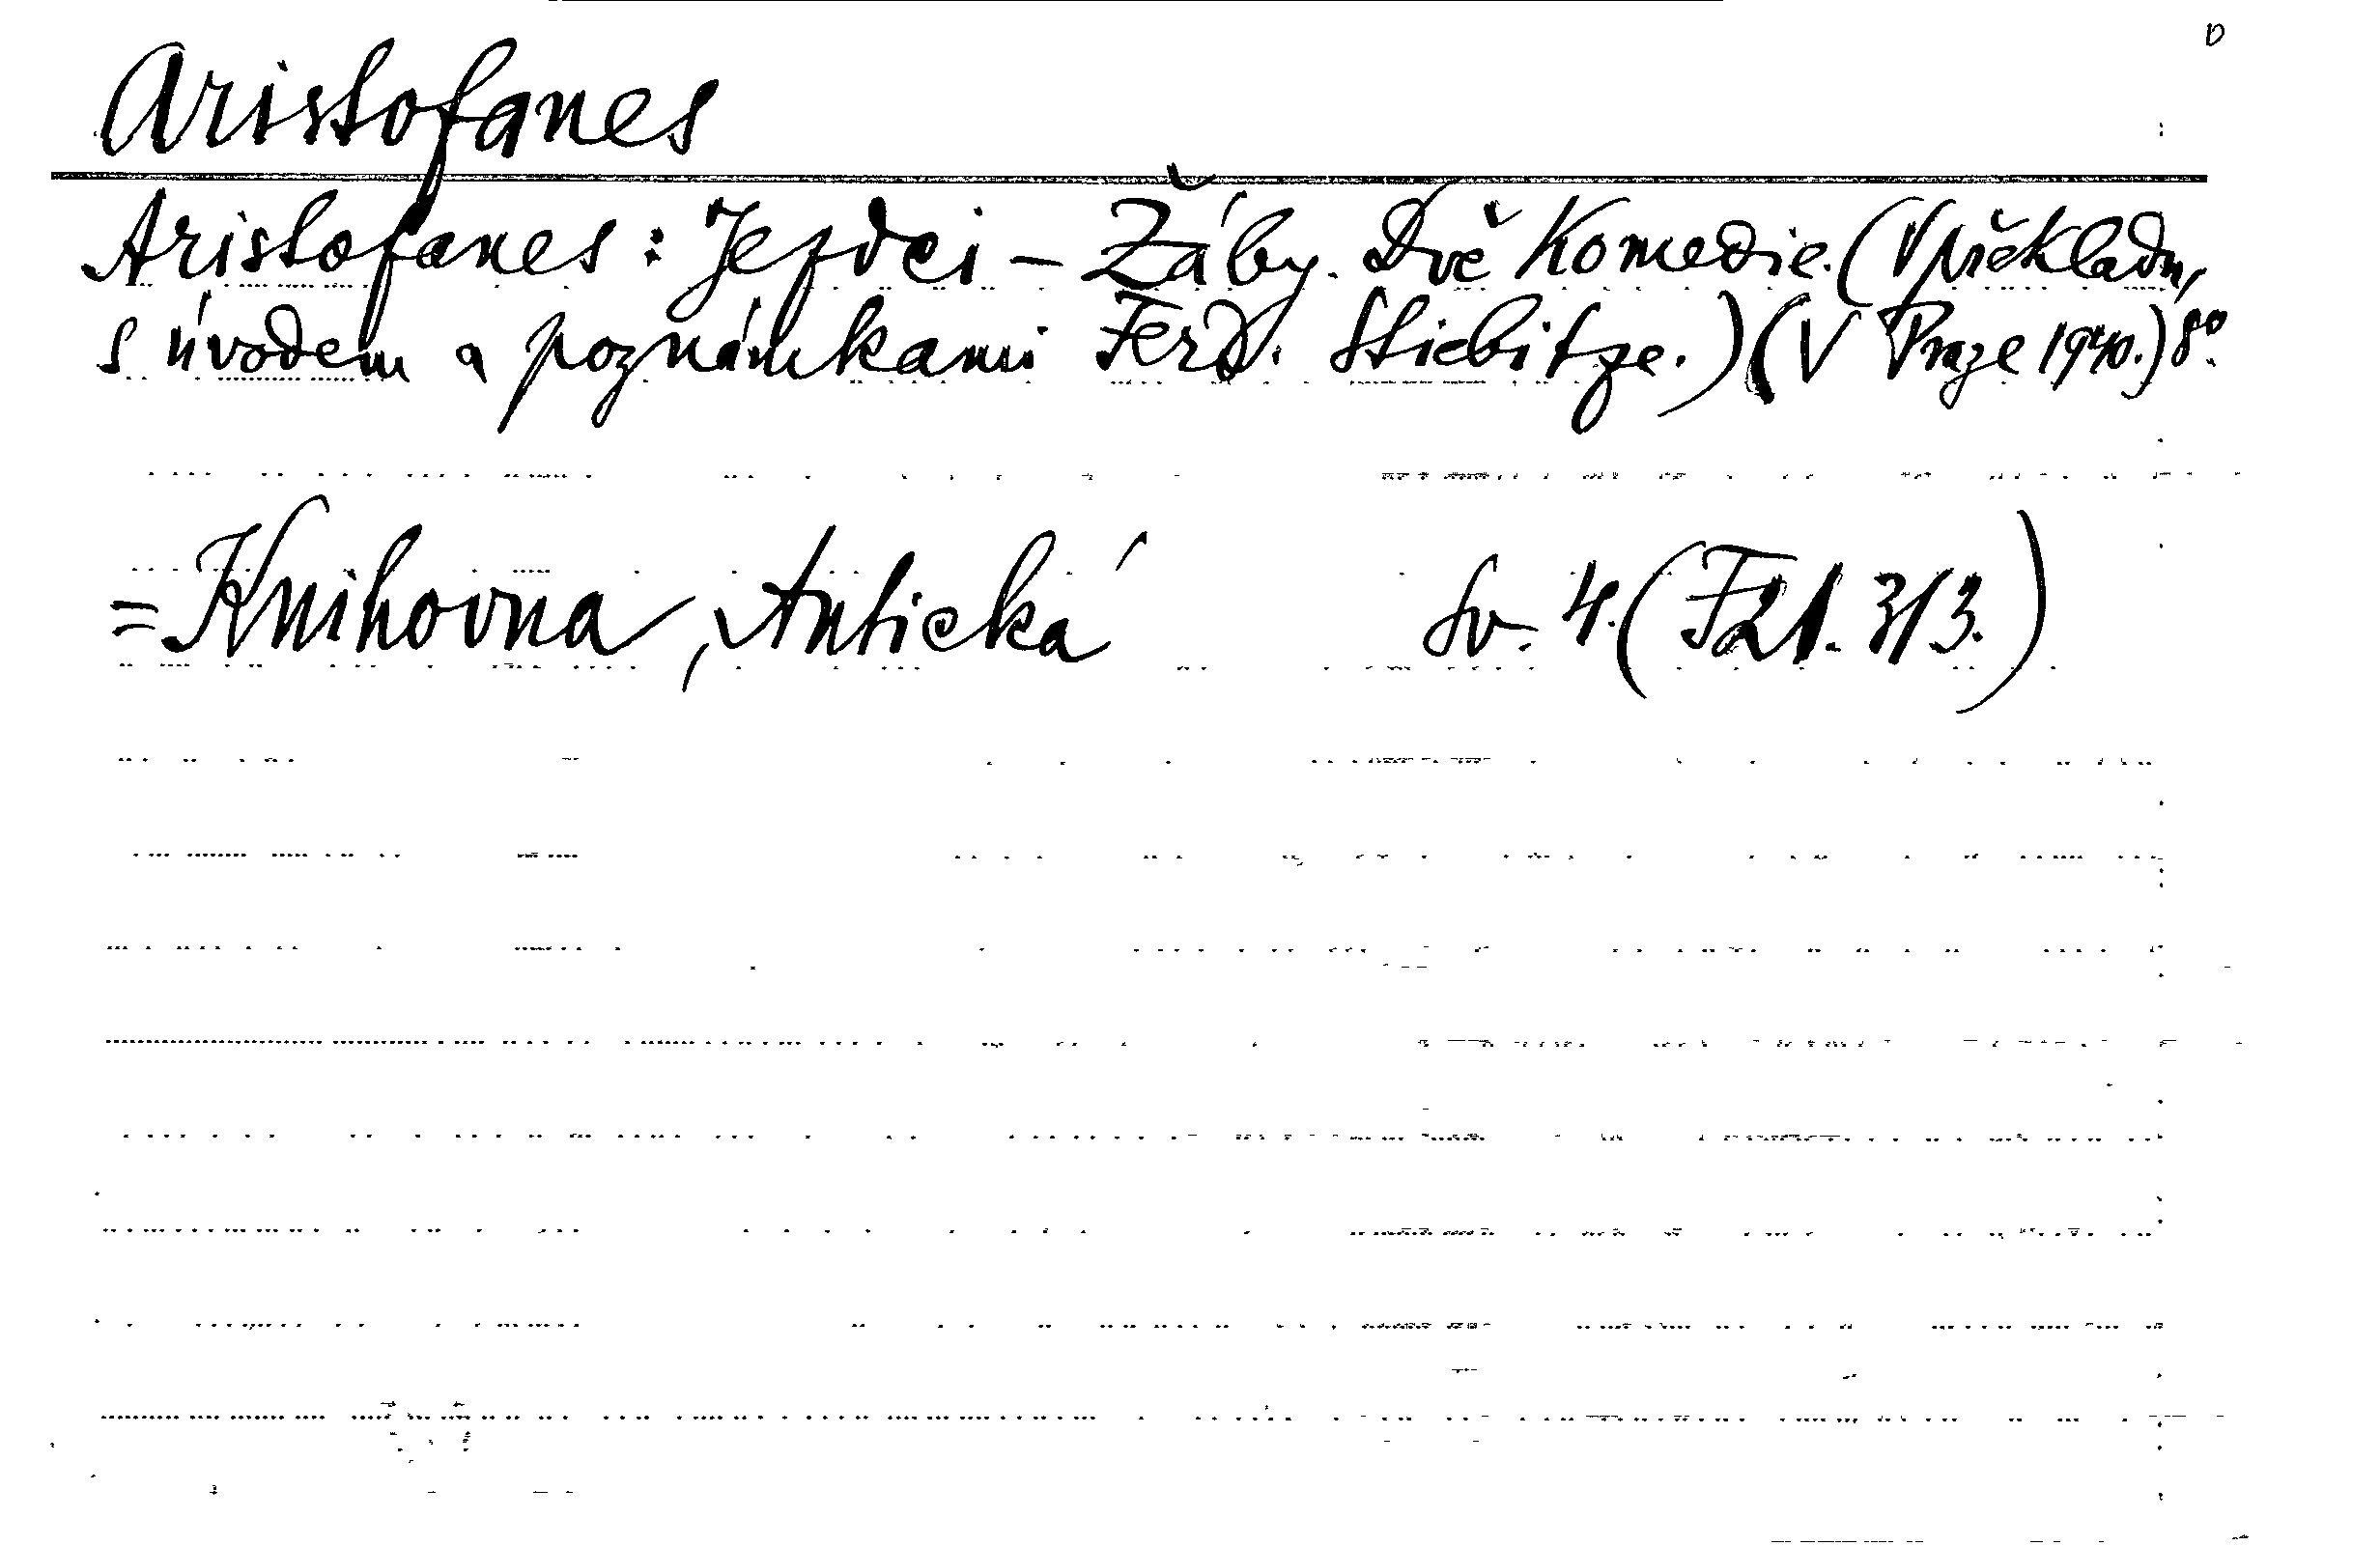 D
Aristofanes
Aristofanes: Jezdci – Žáby. Dvě Komedie. (V překladu,
s úvodem a poznámkami Ferd. Stiebitze.) (V Praze 1940.) 8°.
= Knihovna, Antická Sv. 4. (F21. 313.)